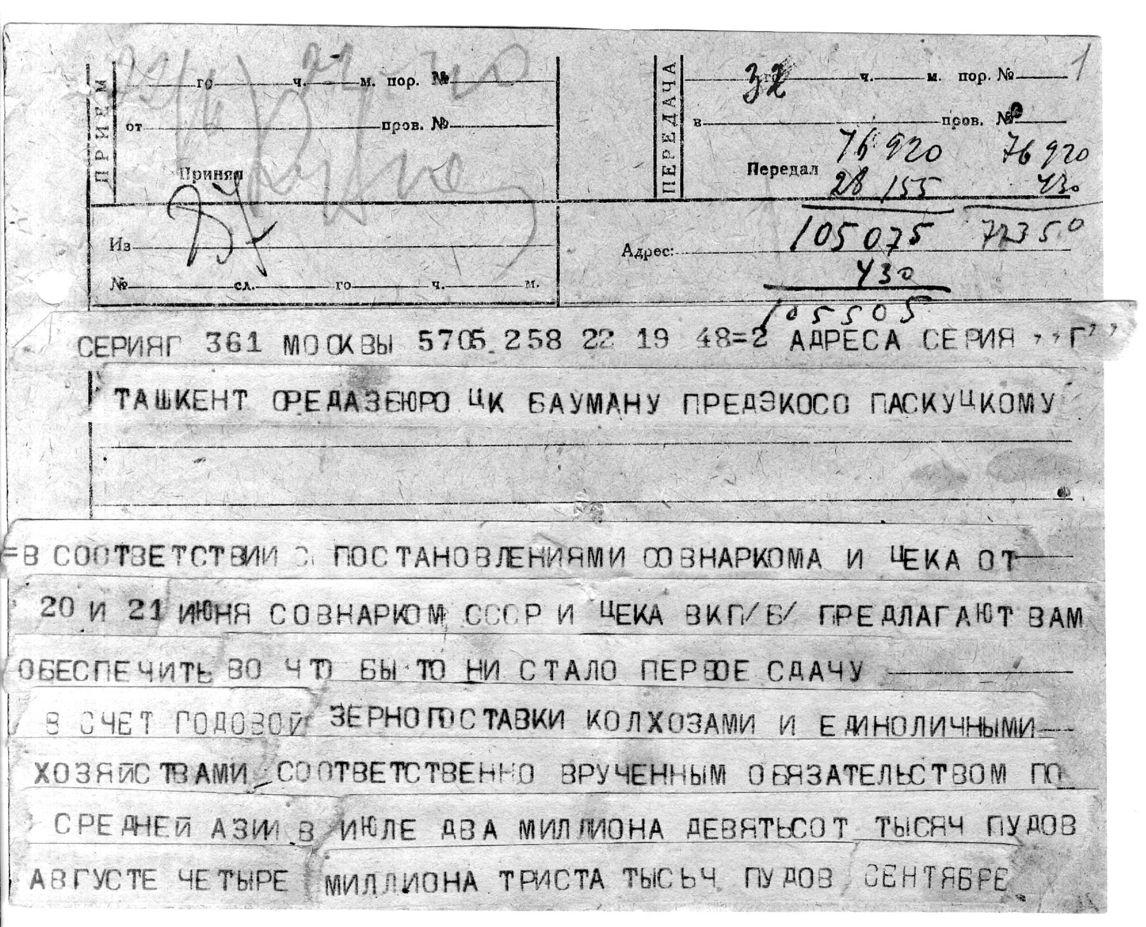 1
ПРИЕМ
го ч. м. пор. №
от пров. №
Принял
Из
№ сл. го ч. м.
ПЕРЕДАЧА
го ч. м. пор. №
в пров. №
Передал
76 920 76 920
28 155 430
105 075 77350
Адрес:
430
105505
СЕРИЯГ 361 МОСКВЫ 5705 258 22 19 48=2 АДРЕСА СЕРИЯ ,,Г’’
ТАШКЕНТ СРЕДАЗБЮРО ЦК БАУМАНУ ПРЕДЭКОСО ПАСКУЦКОМУ
=В СООТВЕТСТВИИ С ПОСТАНОВЛЕНИЯМИ СОВНАРКОМА И ЦЕКА ОТ
20 И 21 ИЮНЯ СОВНАРКОМ СССР И ЦЕКА ВКП/Б/ ПРЕДЛАГАЮТ ВАМ
ОБЕСПЕЧИТЬ ВО ЧТО БЫ ТО НИ СТАЛО ПЕРВОЕ СДАЧУ
В СЧЕТ ГОДОВОЙ ЗЕРНОПОСТАВКИ КОЛХОЗАМИ И ЕДИНОЛИЧНЫМИ
ХОЗЯЙСТВАМИ СООТВЕТСТВЕННО ВРУЧЕННЫМ ОБЯЗАТЕЛЬСТВОМ ПО
СРЕДНЕЙ АЗИИ В ИЮЛЕ ДВА МИЛЛИОНА ДЕВЯТЬСОТ ТЫСЯЧ ПУДОВ
АВГУСТЕ ЧЕТЫРЕ МИЛЛИОНА ТРИСТА ТЫСЬЧ ПУДОВ СЕНТЯБРЕ